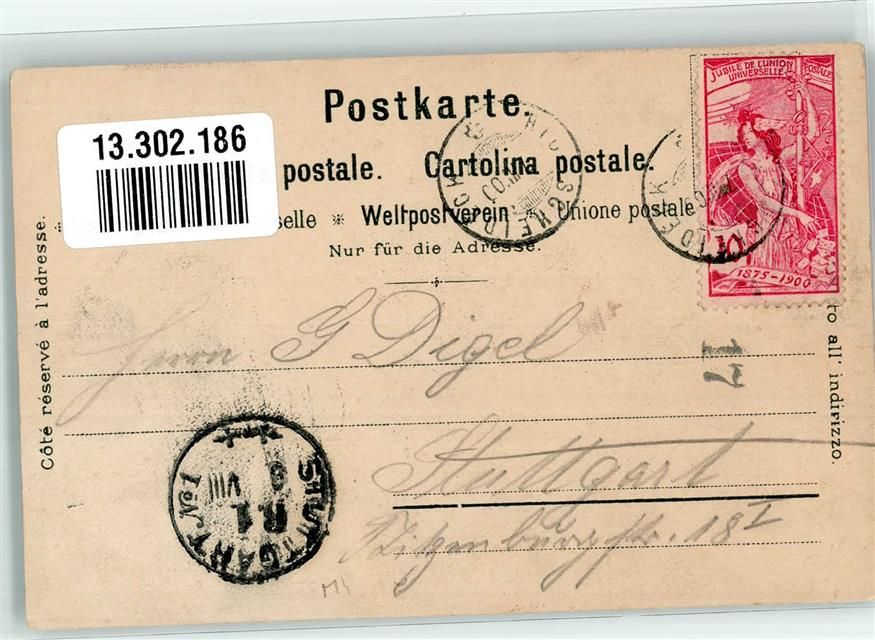 13.302.186
Postkarte.
postale. Cartolina postale.
selle * Weltpostverein * Unione postale
Nur für die Adresse.
Côté réservé à l'adresse.
to all' indirizzo.
JUBILÉ DE L'UNION POSTALE
UNIVERSELLE
10
1875-1900
SCHEIDECK
17
Herrn G Digel
Stuttgart
STUTTGART
VIII